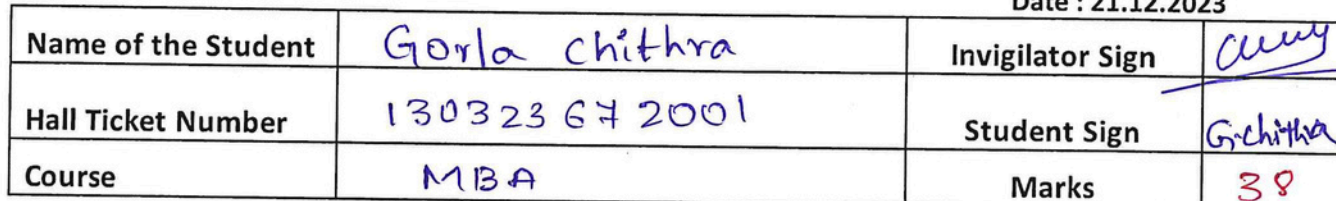 Date : 21.12.2023
Name of the Student Gorla chithra Invigilator Sign
Hall Ticket Number 130323672001 Student Sign G.chithra
Course MBA Marks 38